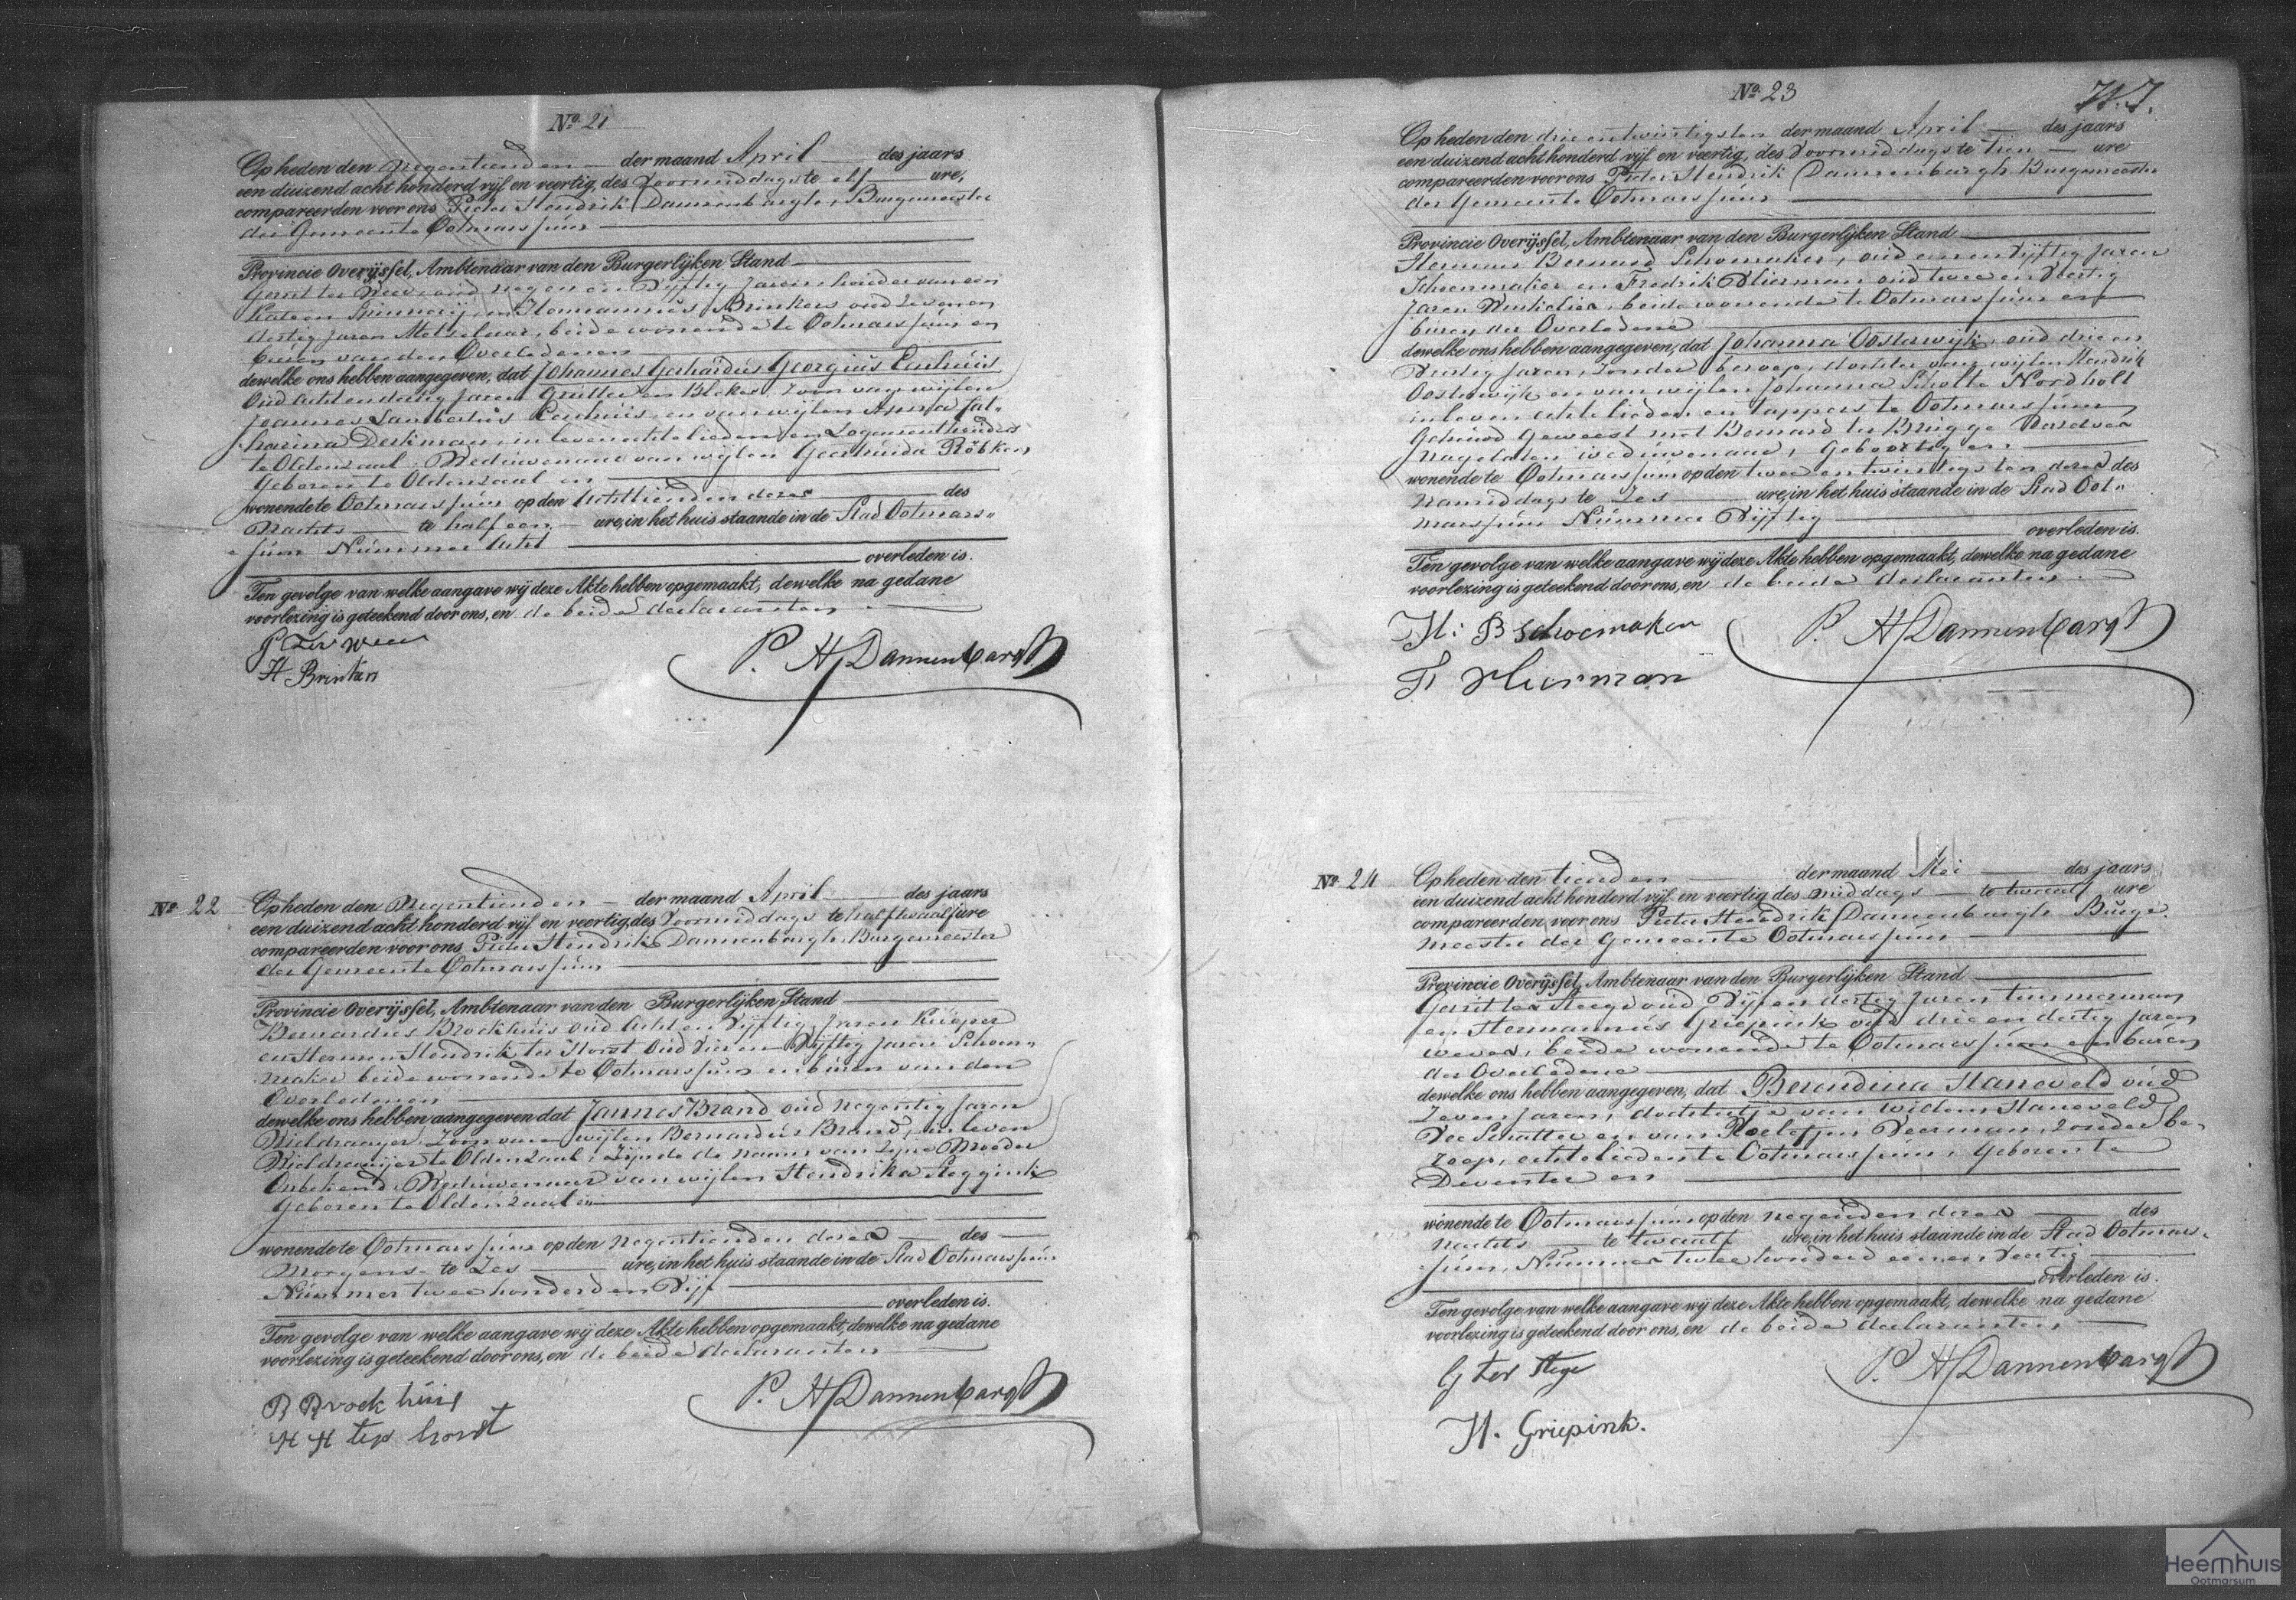 Nº 21
Op heden den Negentienden der maand April des jaars
een duizend acht honderd vijf en veertig, des Voormiddags te elf ure,
compareerden voor ons Pieter Hendrik Dannenbargh, Burgemeester
der Gemeente Ootmarssum
Provincie Overijssel, Ambtenaar van den Burgerlijken Stand
Gerrit ter Weee oud negen en Vijftig Jaren, houder van een
Katoen Spinnerij, en Hermannus Brinkers oud Zeven en
dertig Jaren Metselaar, beide wonende te Ootmarssum en
buren van den Overledenen
dewelke ons hebben aangegeven, dat Johannes Gerhardus Georgius Euhuis
Oud Acht en dertig Jaren Grutter en Bleker, Zoon van wijlen
Joannes Lambertus Euhuis, en van wijlen Anna Cat-
harina Derkman, in leven echtelieden en Logementhouders
te Oldenzaal, Weduwenaar van wijlen Geertruida Röbken
Geboren te Oldenzaal en
wonende te Ootmarssum op den Achttienden dezer des
Nachts te half een ure, in het huis staande in de Stad Ootmars-
sum Nummer Acht
overleden is.
Ten gevolge van welke aangave wij deze Akte hebben opgemaakt, dewelke na gedane
voorlezing is geteekend door ons, en de beide declaranten
H Brinkers
P. H Dannenbargh
Nº 22
Op heden den Negentienden der maand April des jaars
een duizend acht honderd vijf en veertig, des Voormiddags te half twaalf ure
compareerden voor ons Pieter Hendrik Dannenbargh, Burgemeester
der Gemeente Ootmarssum
Provincie Overijssel, Ambtenaar van den Burgerlijken Stand
Bernardus Brockhuis oud Acht en Vijftig Jaren Kuiper
en Hermen Hendrik ter Horst Oud Vier en Vijftig Jaren Schoen-
maker beide wonende te Ootmarssum en buren van den
Overledenen
dewelke ons hebben aangegeven dat Jannes Brand oud negentig Jaren
Wieldraaijer, Zoon van wijlen Bernardus Brand, in leven
Wieldraaijer te Oldenzaal, Zijnde de naam van Zijne Moeder
Onbekend, Weduwenaar van wijlen Hendrika Heggink
Geboren te Oldenzaal en
wonende te Ootmarssum op den Negentienden dezer des
Morgens te Zes ure, in het huis staande in de Stad Ootmarssum
Nummer twee honderd en Vijf
overleden is.
Ten gevolge van welke aangave wij deze Akte hebben opgemaakt, dewelke na gedane
voorlezing is geteekend door ons, en de beide declaranten
B Brockhuis
H H ter horst
P. H Dannenbargh
Nº 23
Op heden den drie en twintigsten der maand April des jaars
een duizend acht honderd vijf en veertig, des Voormiddags te tien ure
compareerden voor ons Pieter Hendrik Dannenbargh Burgemeester
der Gemeente Ootmarssum
Provincie Overijssel, Ambtenaar van den Burgerlijken Stand
Hermen Bernard Schoemaker, oud een en Vijftig Jaren
Schoenmaker en Fredrik Vlierman oud twee en Veertig
Jaren Winkelier, beide wonende te Ootmarssum en
buren der Overledene
dewelke ons hebben aangegeven, dat Johanna Oosterwijk, oud drie en
Veertig Jaren, Zonder beroep, dochter van wijlen Hendrik
Oosterwijk en van wijlen Johanna Scholte Nordholt
in leven echtelieden en tappers te Ootmarssum
Gehuwd geweest met Bernard ter Brugge Verwer
nagelaten weduwenaar, Geboortig en
wonende te Ootmarssum op den twee en twintigsten dezer des
namiddags te Zes ure, in het huis staande in de Stad Oot-
marssum Nummer Vijftig
overleden is.
Ten gevolge van welke aangave wij deze Akte hebben opgemaakt, dewelke na gedane
voorlezing is geteekend door ons, en de beide declaranten
H: B Schoemaker
F Vlierman
P. H Dannenbargh
Nº 24
Op heden den tienden der maand Mei des jaars
een duizend acht honderd vijf en veertig des middags te twaalf ure
compareerden voor ons Pieter Hendrik Dannenbargh Burge-
meester der Gemeente Ootmarssum
Provincie Overijssel, Ambtenaar van den Burgerlijken Stand
Gerrit ter Stege oud Vijf en dertig Jaren timmerman
en Hermannus Griepink oud drie en dertig Jaren
wever, beide wonende te Ootmarssum en buren
der Overledene
dewelke ons hebben aangegeven, dat Berendina Haneveld oud
Zeven Jaren, dochtertje van Willem Haneveld
Vee Schatter en van Roelofjen Veerman, Zonder be-
roep, echtelieden te Ootmarssum, Geboren te
Deventer en
wonende te Ootmarssum op den negenden dezer des
Nachts te twaalf ure, in het huis staande in de Stad Ootmars-
sum, Nummer twee honderd een en Veertig
overleden is.
Ten gevolge van welke aangave wij deze Akte hebben opgemaakt, dewelke na gedane
voorlezing is geteekend door ons, en de beide declaranten
G ter Stege
H. Griepink.
P. H Dannenbargh
Heemhuis
Ootmarsum